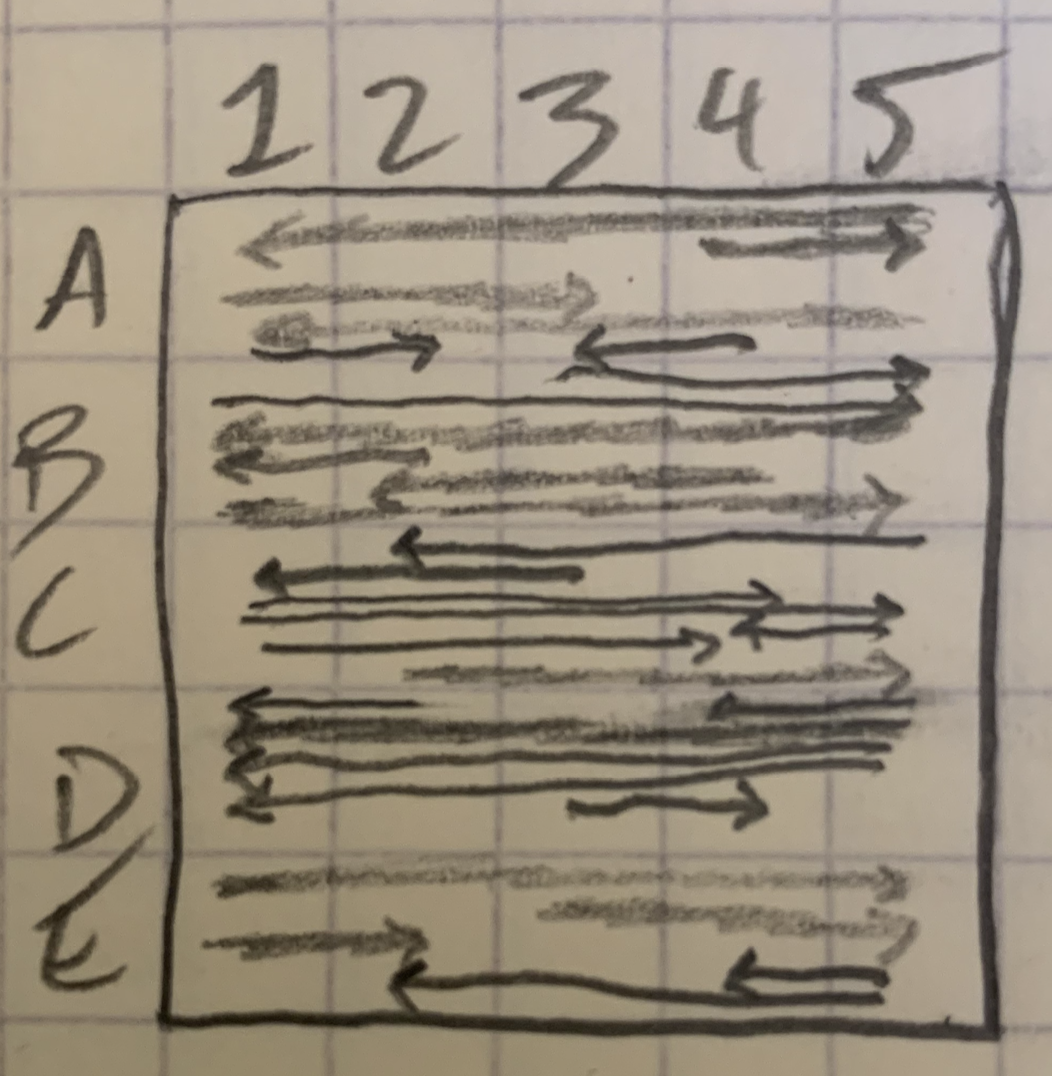 1 2 3 4 5
A
B
C
D
E